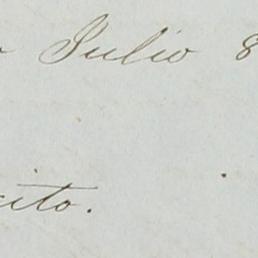 Julio 8
cito.